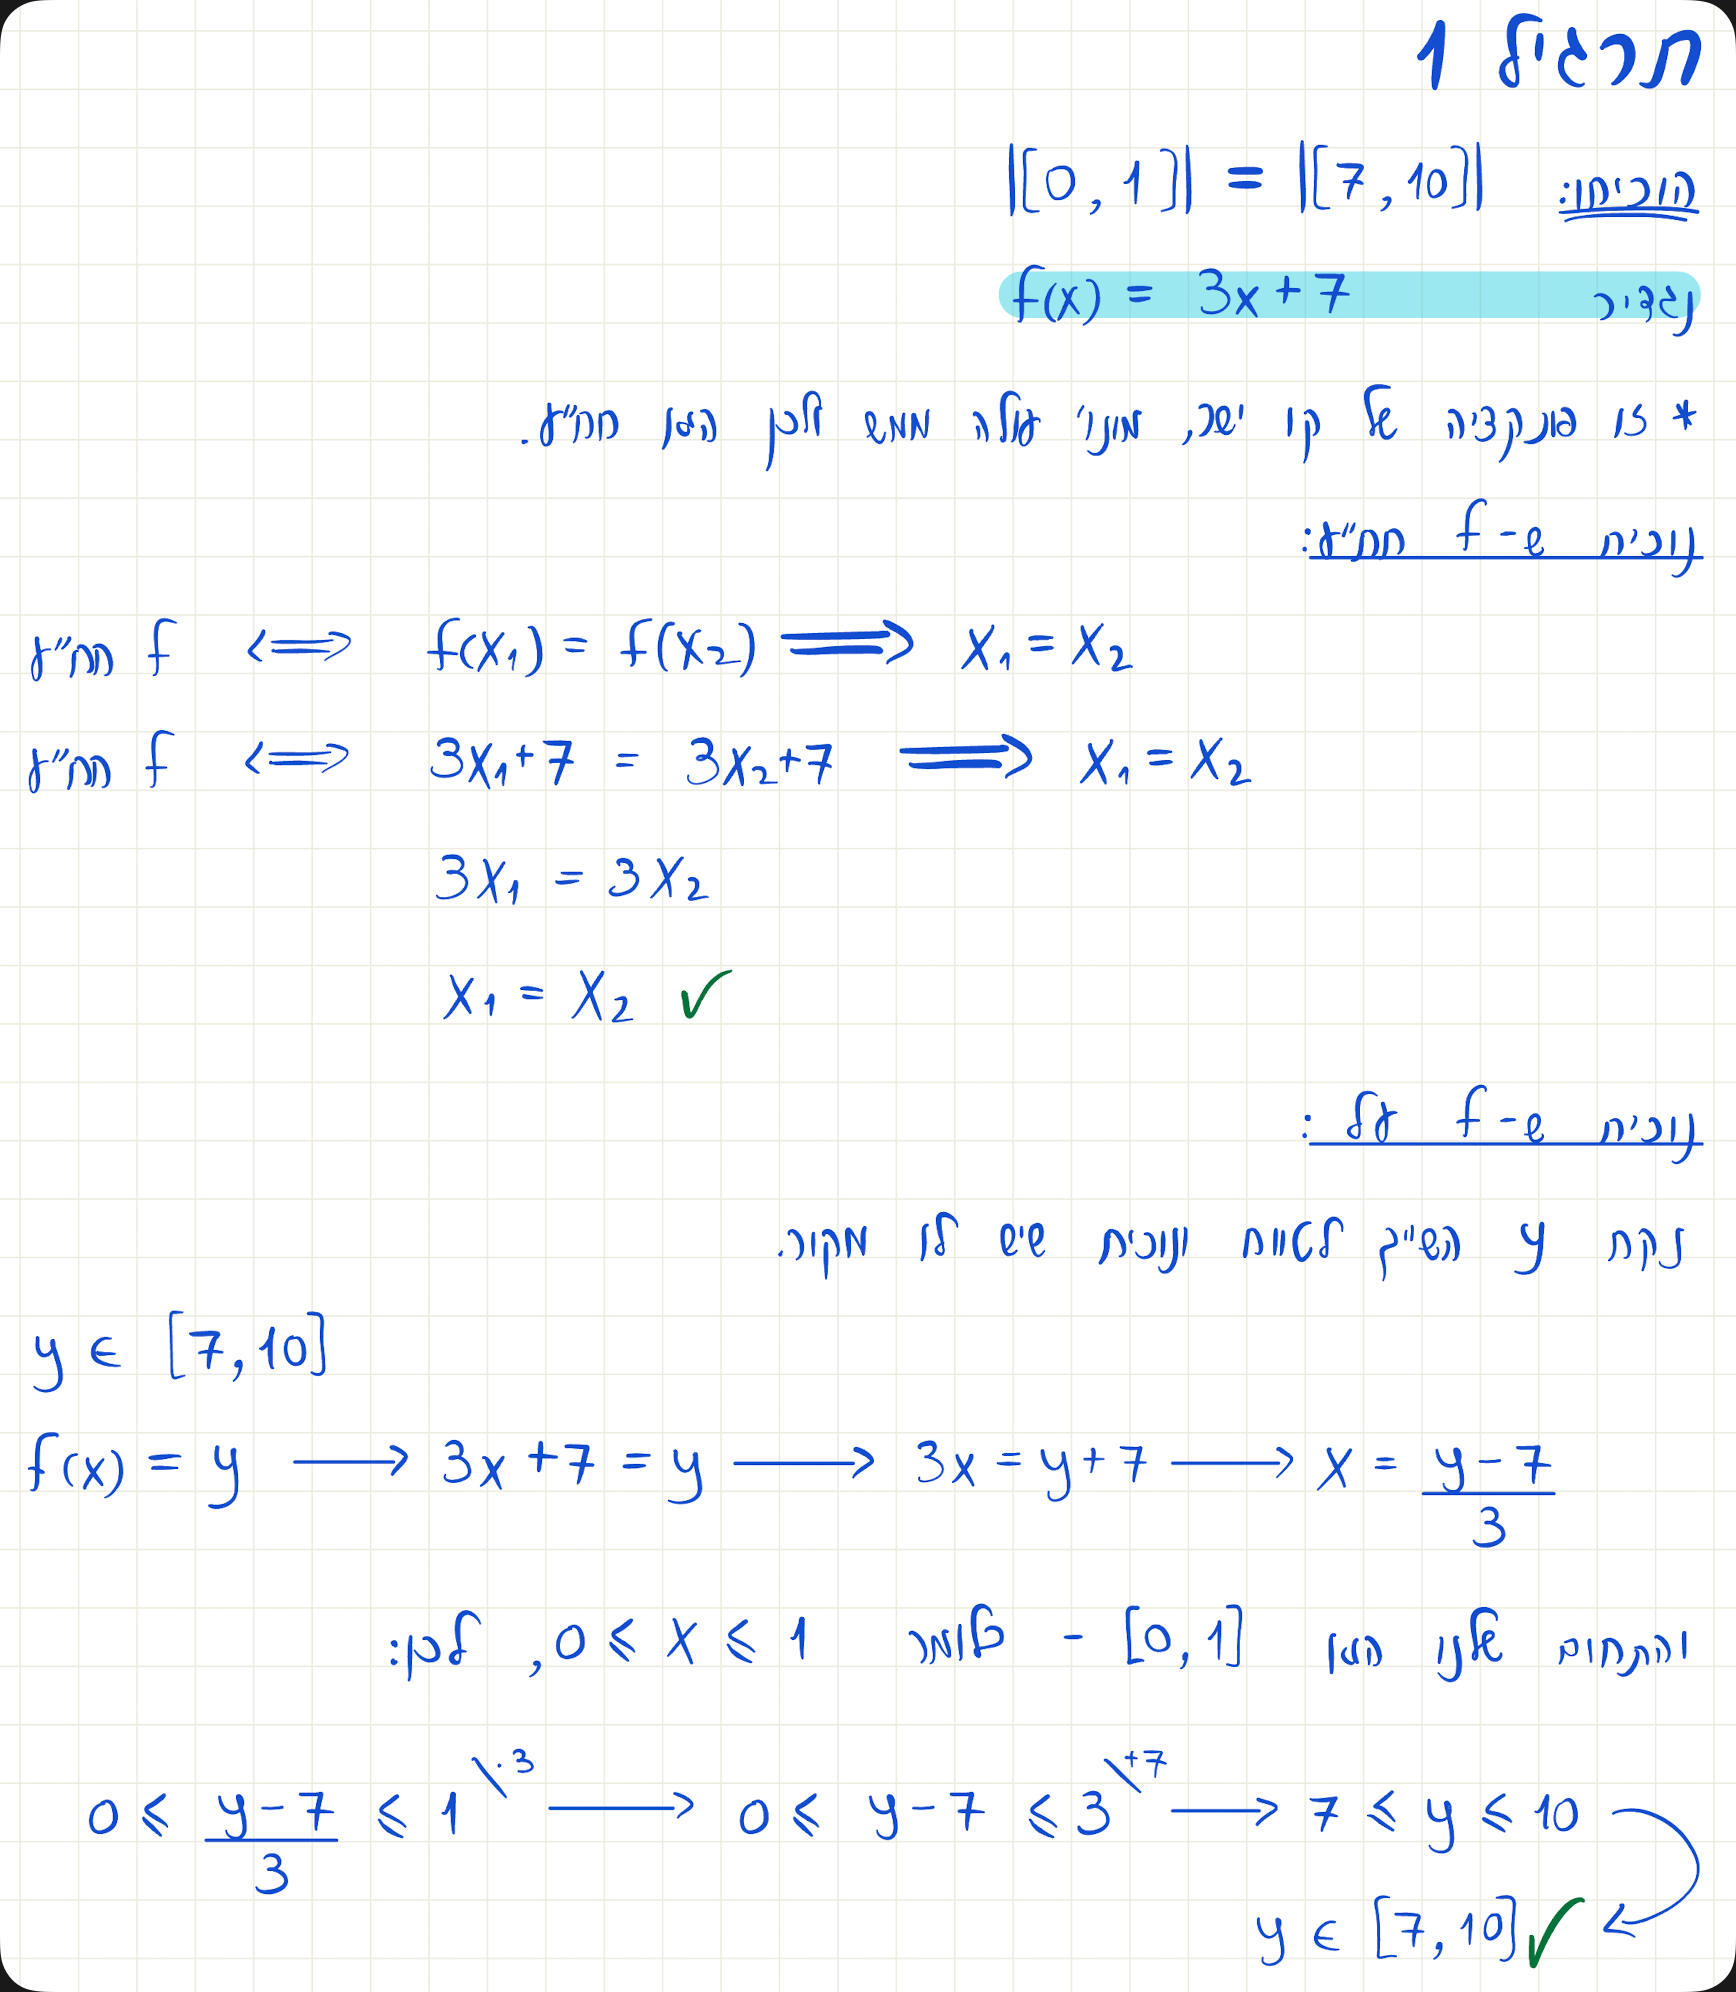 תרגיל 1
הוכיחו: |[0,1]| = |[7,10]|
נגדיר f(x) = 3x+7
* זו פונקציה של קו ישר, מונו' עולה ממש לכן היא חח"ע.
נוכיח ש-f חח"ע:
f חח"ע <=> f(x₁) = f(x₂) ⟹ x₁ = x₂
f חח"ע <=> 3x₁+7 = 3x₂+7 ⟹ x₁ = x₂
3x₁ = 3x₂
x₁ = x₂ ✓
נוכיח ש-f על:
נקח y השייך לטווח ונוכיח שיש לו מקור.
y ∈ [7,10]
f(x) = y ⟶ 3x+7 = y ⟶ 3x = y+7 ⟶ x = (y-7)/3
והתחום שלנו הוא [0,1] - כלומר 0 ≤ x ≤ 1, לכן:
0 ≤ (y-7)/3 ≤ 1 \·3 ⟶ 0 ≤ y-7 ≤ 3 \+7 ⟶ 7 ≤ y ≤ 10
y ∈ [7,10] ✓